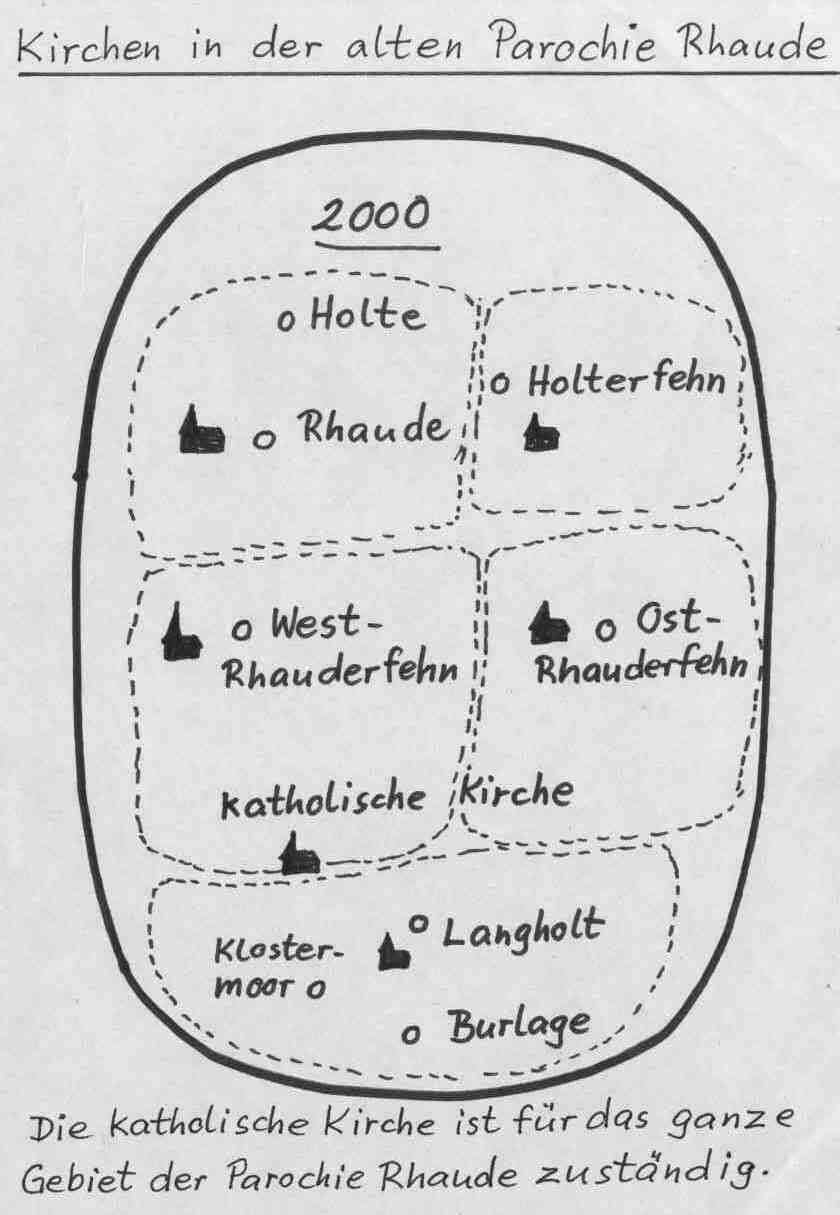 Kirchen in der alten Parochie Rhaude
2000
Holte
Holterfehn
Rhaude
West-
Rhauderfehn
Ost-
Rhauderfehn
katholische Kirche
Kloster-
moor
Langholt
Burlage
Die katholische Kirche ist für das ganze
Gebiet der Parochie Rhaude zuständig.